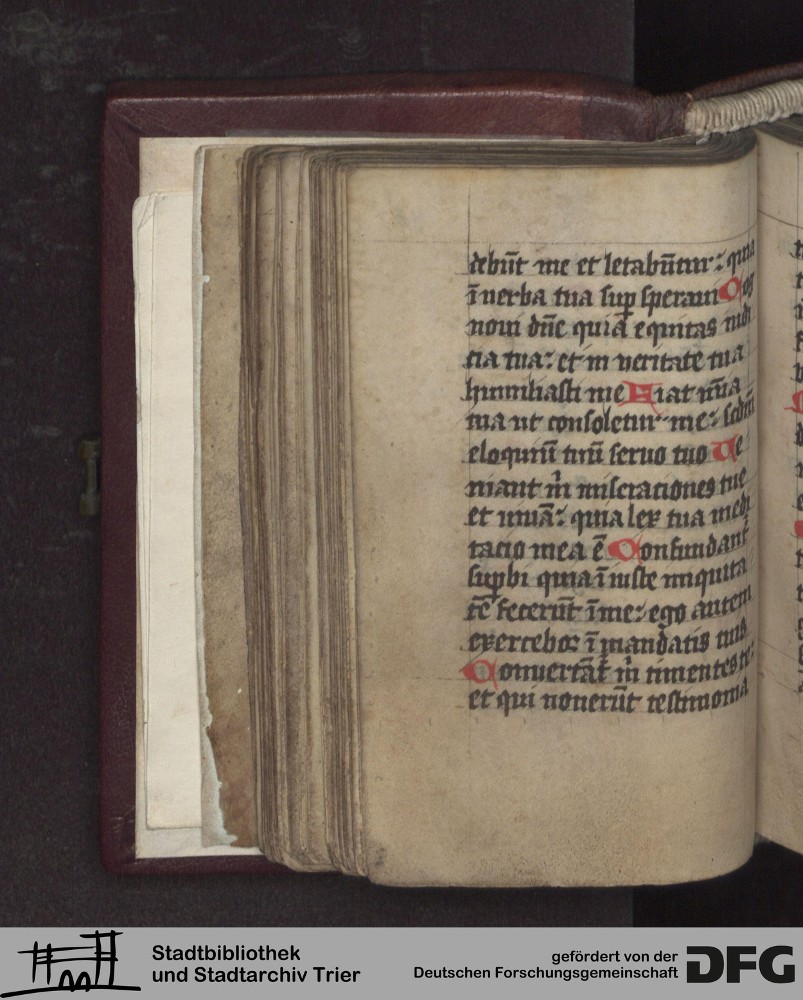 debūt me et letabūtur: quia
ī uerba tua sup speraui Cog
noui dn̄e quia equitas iudi
cia tua: et in ueritate tua
humiliasti me Fiat mīa
tua ut consoletur me: scdm̄
eloquiū tuū seruo tuo Ve
niant m̄ miseraciones tue
et uiuā: quia lex tua medi
tacio mea ē Confundant̄
supbi quia īiuste iniquita
tē fecerūt ī me: ego autem
exercebor ī mandatis tuis
Conuertāt̄ m̄ timentes te:
et qui nouerūt testimonia
Stadtbibliothek
und Stadtarchiv Trier
gefördert von der
Deutschen Forschungsgemeinschaft
DFG